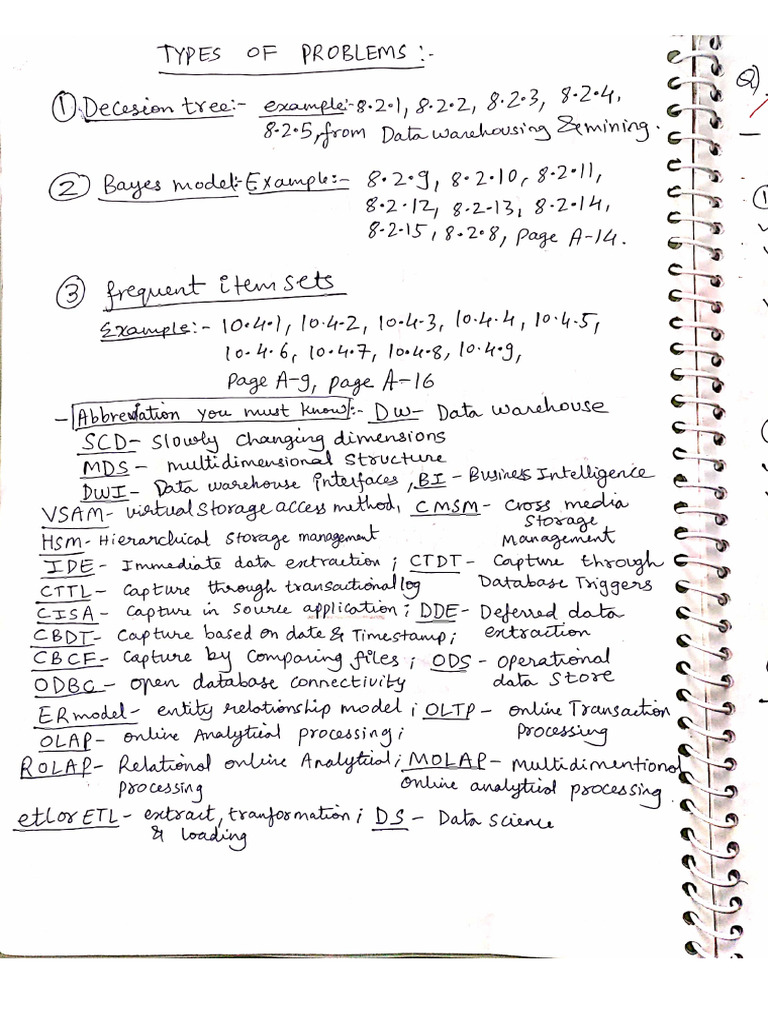 TYPES OF PROBLEMS:-
① Decesion tree:- example:- 8.2.1, 8.2.2, 8.2.3, 8.2.4,
8.2.5, from Data warehousing & mining.
② Bayes model:- Example:- 8.2.9, 8.2.10, 8.2.11,
8.2.12, 8.2.13, 8.2.14,
8.2.15, 8.2.8, page A-14.
③ frequent itemsets
Example:- 10.4.1, 10.4.2, 10.4.3, 10.4.4, 10.4.5,
10.4.6, 10.4.7, 10.4.8, 10.4.9,
page A-9, page A-16
- Abbreviation you must know:- DW- Data warehouse
SCD- slowly changing dimensions
MDS- multidimensional structure
DWI- Data warehouse interfaces, BI- Business Intelligence
VSAM- virtual storage access method, CMSM- cross media
storage
HSM- Hierarchical storage management Management
IDE- Immediate data extraction; CTDT- Capture through
CTTL- capture through transactional log Database Triggers
CISA- capture in source application; DDE- Deferred data
CBDT- capture based on date & Timestamp; extraction
CBCF- capture by comparing files; ODS- operational
ODBC- open database connectivity data store
ER model- entity relationship model; OLTP- online Transaction
OLAP- online Analytical processing; processing
ROLAP- Relational online Analytical; MOLAP- multidimentional
processing online analytical processing
etl or ETL- extract, tranformation; DS- Data science
& loading
Q)
①